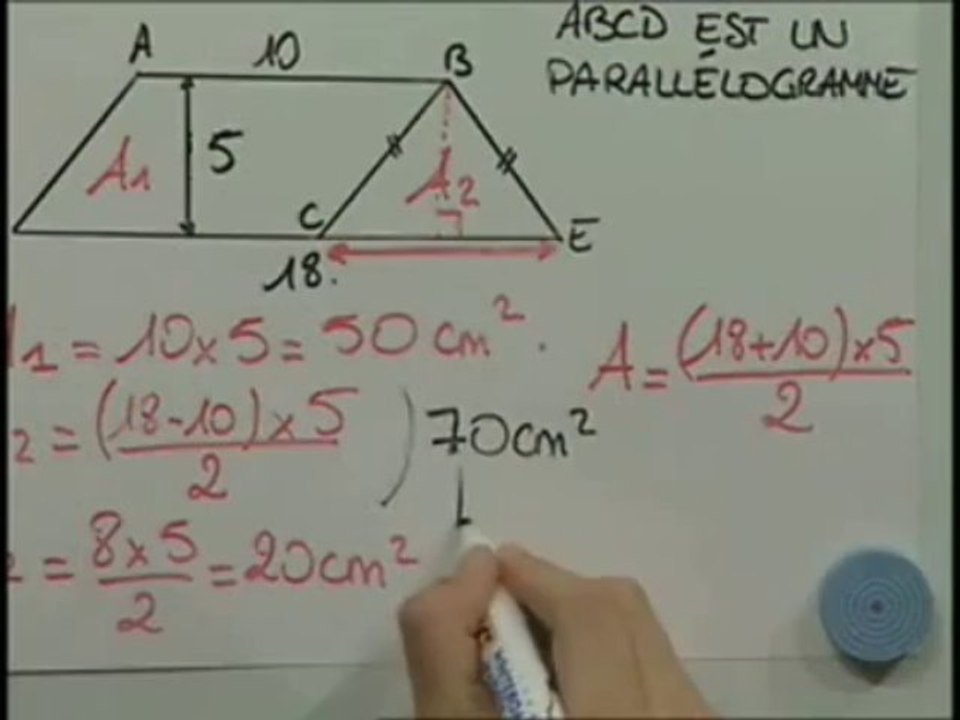 ABCD EST UN
PARALLÉLOGRAMME
A 10 B
A1 5 A2
C E
18.
1 = 10x5 = 50 cm².
A = (18+10)x5 / 2
2 = (18-10)x5 / 2 ) 70cm²
= 8x5 / 2 = 20cm²